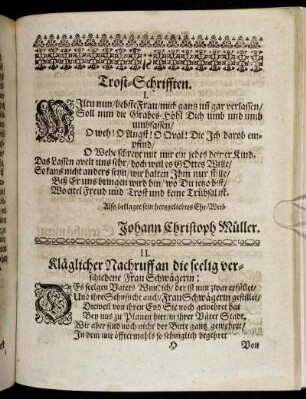 Trost-Schrifften.
I.
Wiltu nun/ liebste Frau/ mich gantz uñ gar verlassen/
Soll nun die Grabes-Höhl Dich umb und umb
umbfassen/
O weh! O Angst! O Qval! Die Jch darob em-
pfind/
O Wehe! schreyt mit mir ein jedes deiner Kind.
Das Lassen zwar weh uns thut/ doch weil es GOttes Wille/
So kans nicht anders seyn/ wir halten Jhm nur stille/
Biß Er uns bringen wird hin/ wo Du ietzo bist/
Wo eitel Freud und Trost und keine Trübsal ist.
Also beklaget sein hertzgeliebtes Ehe-Weib
Johann Christoph Müller.
II.
Kläglicher Nachruff an die seelig ver-
schiedene Frau Schwägerin:
DEs seelgen Vaters Wunsch/ der ist nun zwar erfüllet/
Und ihre Sehnsucht auch/ Frau Schwägerin gestillet/
Dieweil von ihrer End Sie noch gewehret hat
Bey uns zu Plauen hier/ in ihrer Väter Stadt.
Wir aber sind noch nicht der Bitte gantz gewehret/
Jn dem wir öfftermahls so sehnglich begehret
H
Von